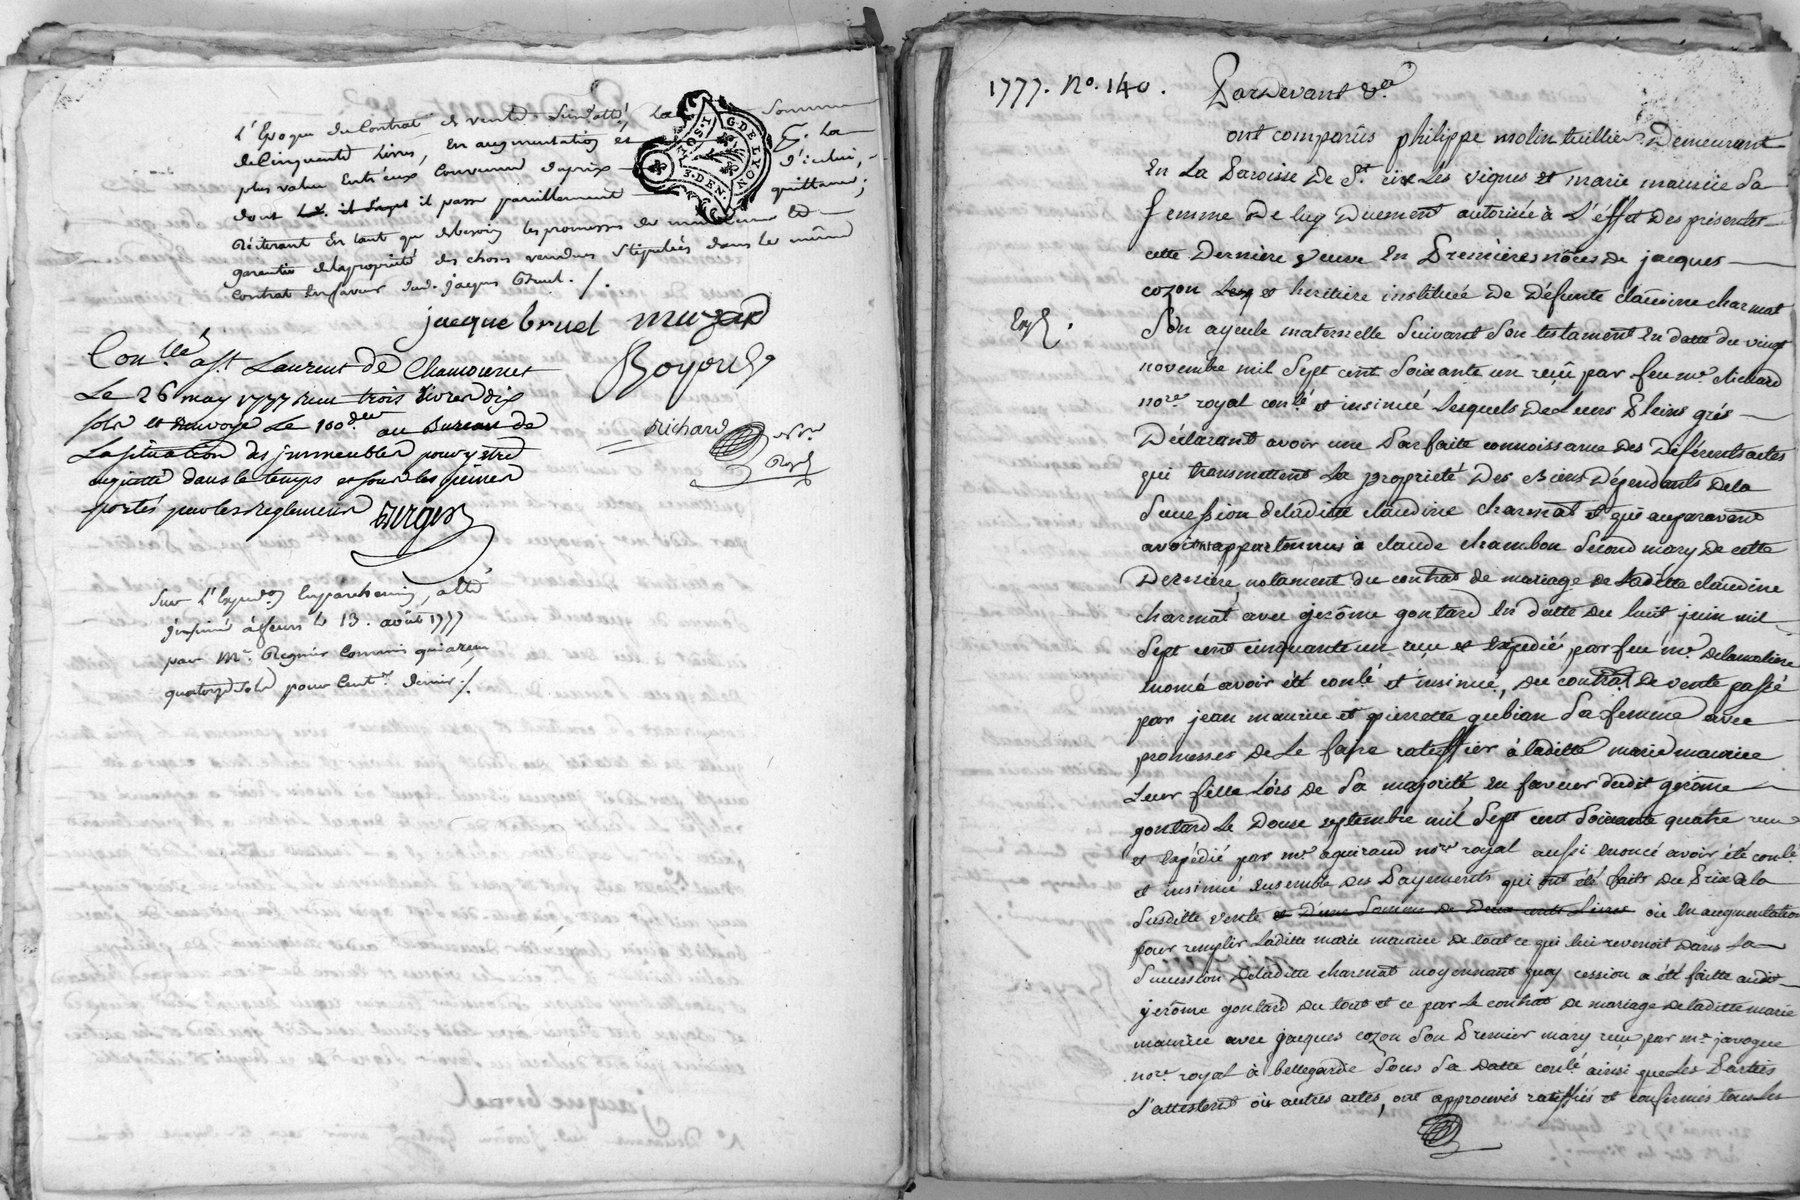 L'Epoque du Contrat de vente susdatté, La somme
de Cinquante Livres, En augmentation et
plus value Entr'eux Convenue du prix d'icelui,
dont il passe pareillement quittance;
Réiterant En tant que de besoin les promesses de maintenue et
garantie de la proprieté des choses vendues Stipulées dans le même
Contrat En faveur dud. jacques Bruel. /.
jacque bruel muzard
Boyoud
Richard
Con.llé à St. Laurent de Chamousset
Le 26 may 1777 reçu trois Livres dix
sols et renvoyé Le 100.e au Bureau de
La situation des immeubles pour y être
acquitté dans le temps et sous les peines
portés par les reglements
G. DE LYON
3. DEN.
Sur L'Expédon En parchemin, a été
insinué à feurs le 13. août 1777
par Mr. Regnier Commis qui a reçu
quatorze sols pour Cent.e denier /.
1777. No. 140.
Pardevant &a
ont comparûs philippe molin tuillier Demeurant
En La Paroisse De St cirLes vignes et marie maurice Sa
femme De luy Duement autorisée à L'éffet Des présentes
cette Derniere veuve En Premieres nôces De jacques
cozon et heritiere instituée De Défunte claudine charmat
Son ayeule maternelle Suivant Son testament En datte du vingt
novembre mil Sept cent Soixante un reçû par feu me. Richard
nore. royal conlé et insinué Lesquels De Leurs Pleins grés
Déclarant avoir une Parfaite connoissance des Différents actes
qui transmettent La propriété Des Biens Dépendants De la
Succession de laditte claudine charmat et qui auparavent
avoient appartenus à claude chambon Second mary De cette
Derniere, notament du contrat de mariage de Laditte claudine
charmat avec jerôme gontard En datte du huit juin mil
Sept cent cinquante un reçu et Expedié par feu me. Delamoliere
Enoncé avoir été conlé et insinué, du contrat De vente passé
par jean maurice et pierrette gubian Sa femme avec
promesses De Le faire rateffier à laditte marie maurice
Leur fille Lors De Sa majorité En faveur dudit gerôme
gontard Le Douse septembre mil Sept cent Soixante quatre reçu
et Expédié par me. aguiraud nore royal aussi Enoncé avoir été conlé
et insinué Ensemble Des Payements qui ont été faits Du Prix De la
Susditte vente et D'une Somme De Deux cents Livres où En augmentation
pour remplir Laditte marie maurice De tout ce qui lui revenoit Dans La
Succession De laditte charmat moyennant quoy cession a été faitte audit
jerôme gontard Du tout et ce par Le contrat De mariage De laditte marie
maurice avec jacques cozon Son Premier mary reçu par me. javogue
nore. royal à bellegarde Sous Sa Datte conlé ainsi que Les Parties
L'attestent où autres actes, ont approuvés ratiffiés et confirmés tous Les